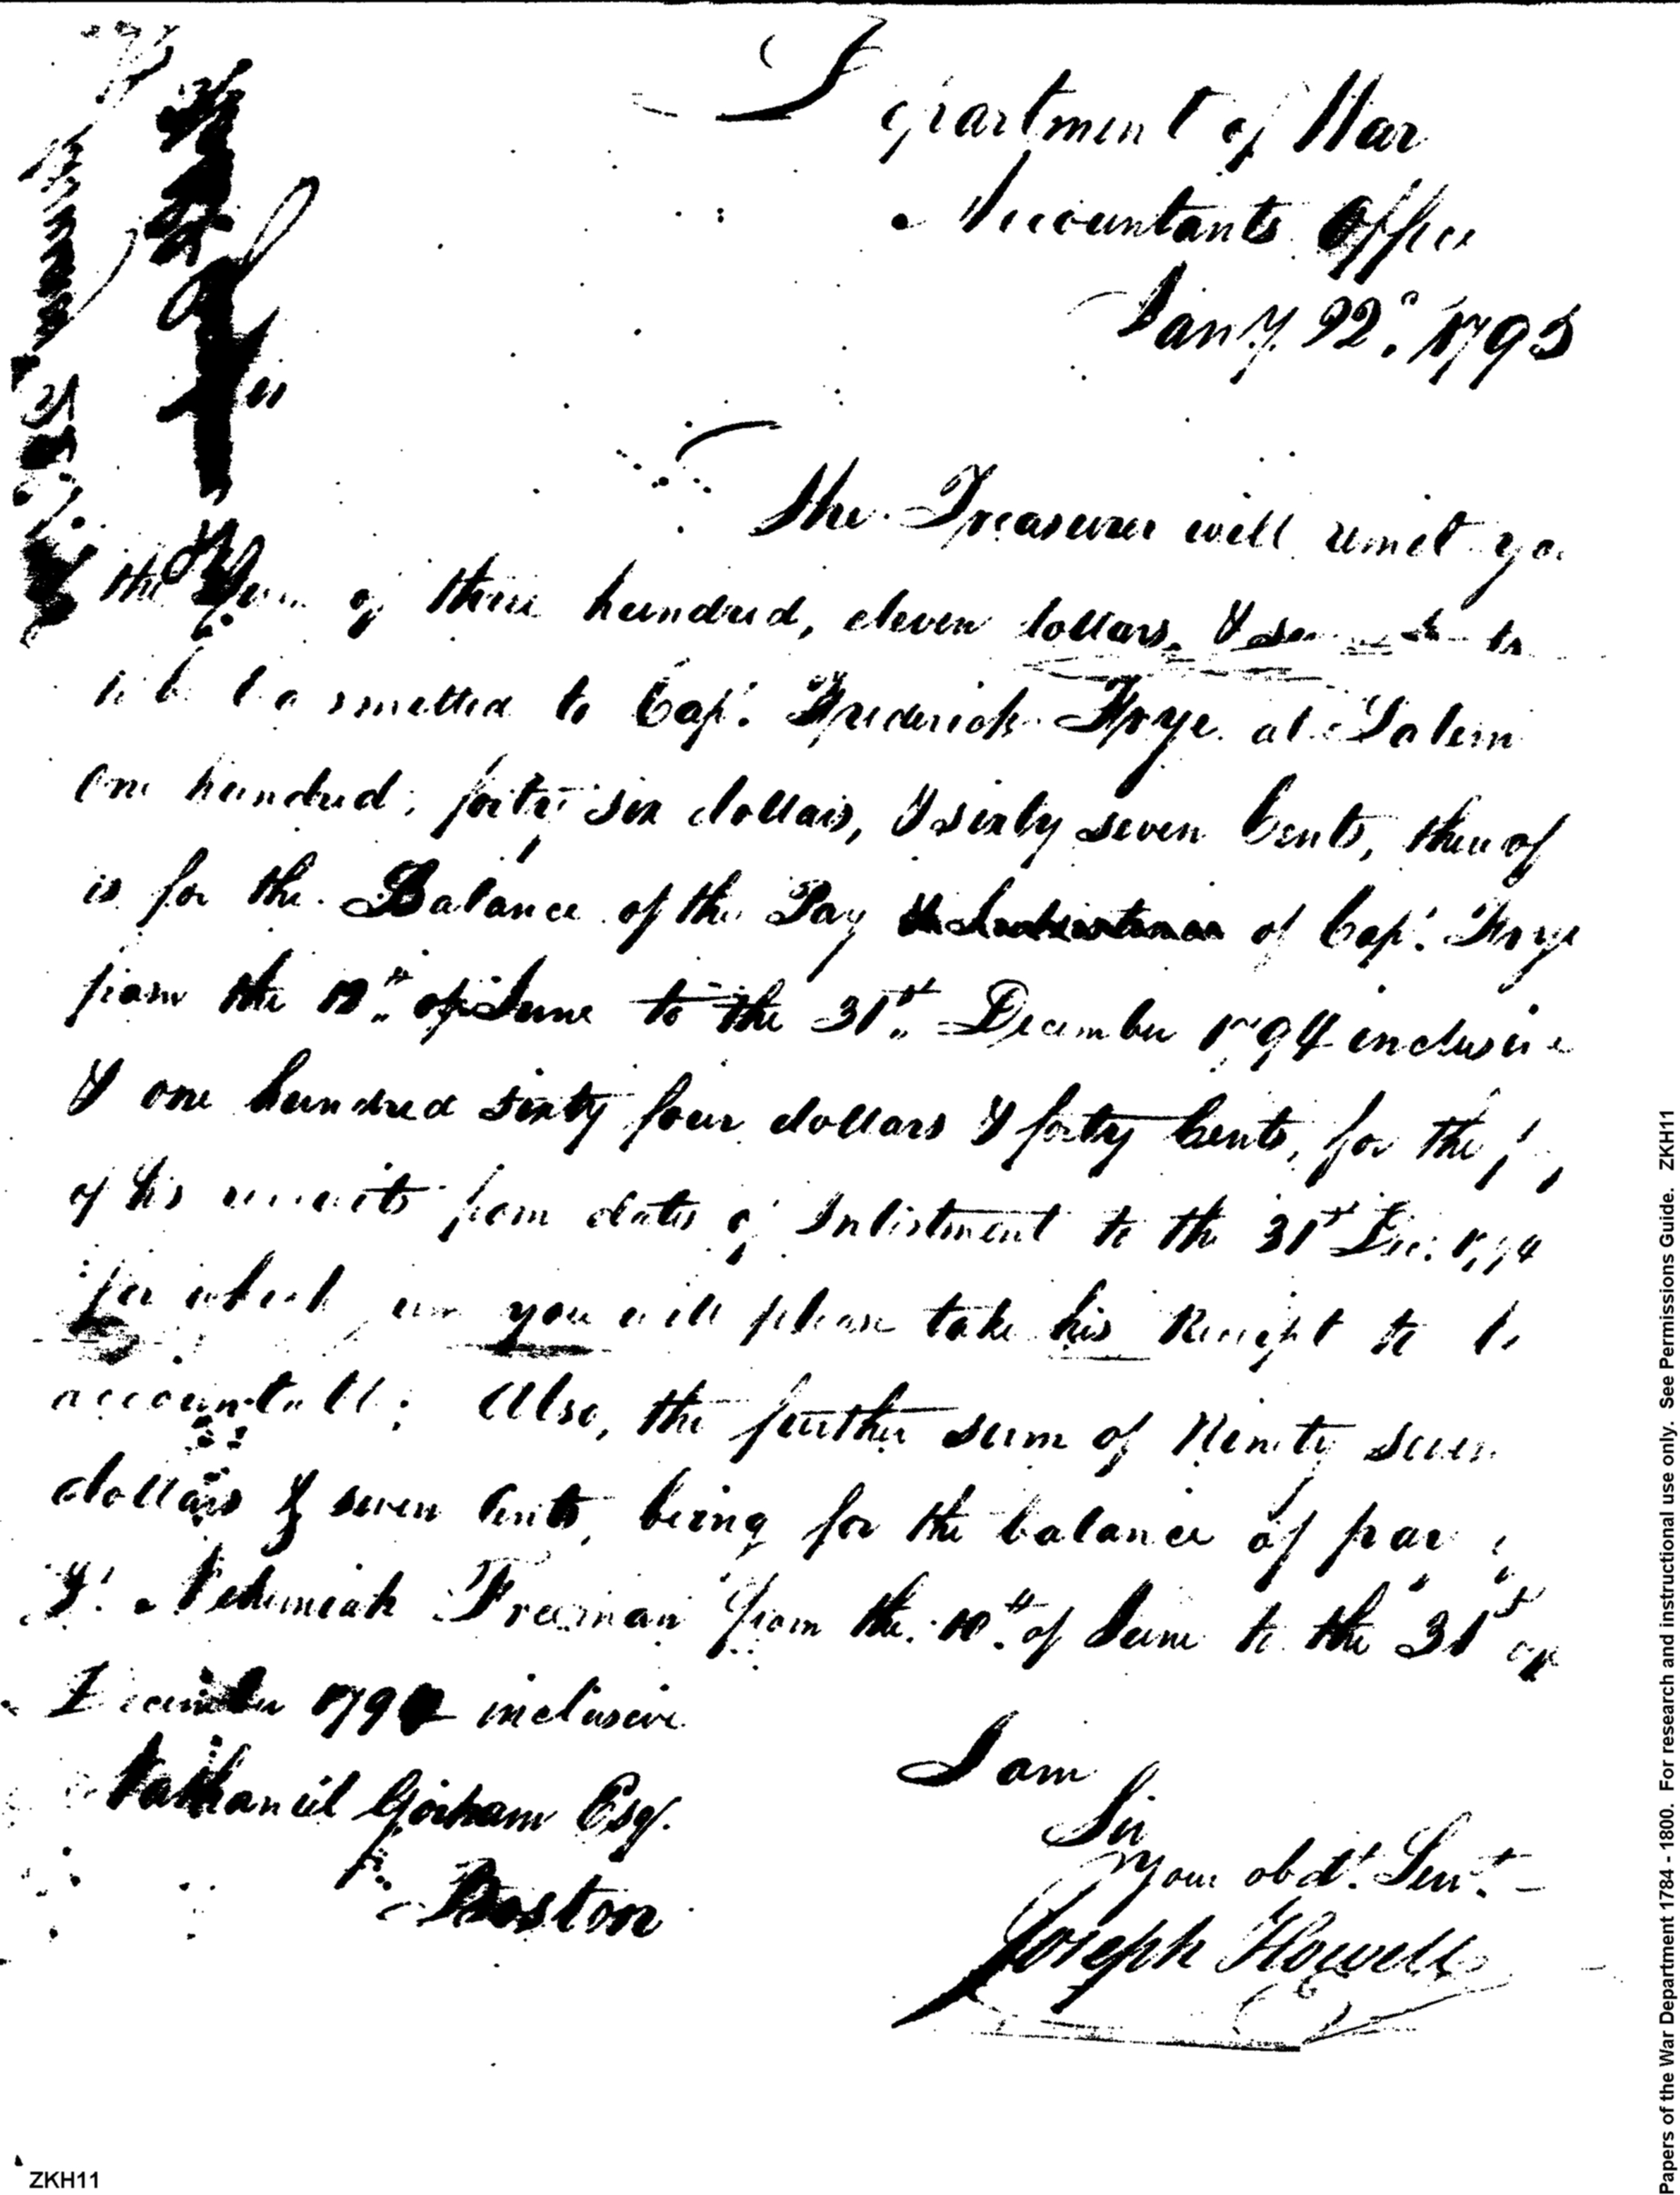 Department of War
Accountants Office
Jany. 22d. 1795
The Treasurer will remit you
the Sum of three hundred, eleven dollars, & seven
to be transmitted to Capt. Frederick Frye at Salem
One hundred, forty six dollars, & sixty seven Cents, thereof
is for the Balance of the Pay & Subsistence of Capt. Frye
from the 10th. of June to the 31st. December 1794 inclusive
& one hundred sixty four dollars & forty Cents, for the pay
of his recruits from dates of Inlistment to the 31st Dec. 1794
for which sum you will please take his Receipt to be
accountable; Also, the further sum of Ninety seven
dollars & seven Cents, being for the balance of pay of
Lt. Nehemiah Freeman from the 10th. of June to the 31st of
December 1794 inclusive
I am
Sir
Your obdt. Servt.
Joseph Howell
Nathaniel Gorham Esqr.
Boston
ZKH11
Papers of the War Department 1784 - 1800. For research and instructional use only. See Permissions Guide. ZKH11